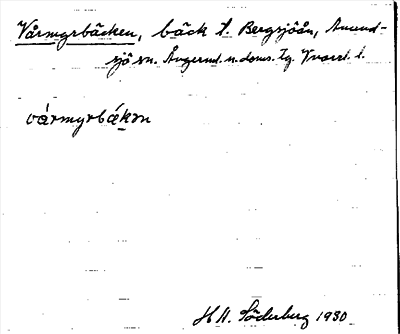 Vårmyrbäcken, bäck t. Bergsjöån, Anund-
sjö sn. Ångerml. n. doms. Tg. l.
vármyrbákən
H. Söderberg 1930